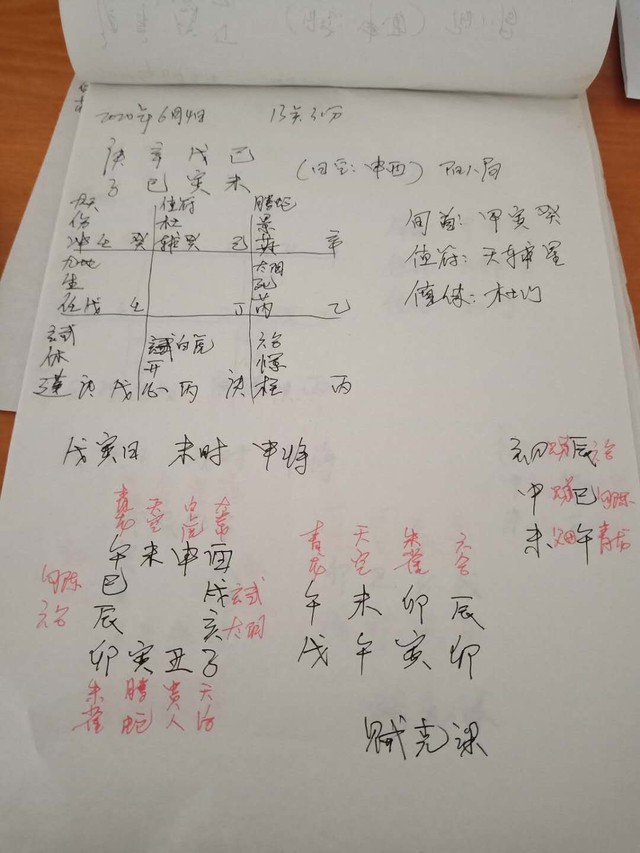 2020年6月4日 13点31分
庚 辛 戊 己
子 巳 寅 未
(旬空:申酉) 阳八局
旬首:甲寅癸
值符:天辅星
值使:杜门
九天 值符 腾蛇
伤 杜 景
冲 壬 癸 辅 癸 己 英 辛
九地 太阴
生 死
任 戊 壬 丁 芮 乙
玄武 白虎 六合
休 开 惊
蓬 庚 戊 心 丙 庚 柱 丙
戊寅日 未时 申将
初 辰 六合
中 巳 勾陈
末 午 青龙
青龙 天空 白虎 太常
午 未 申 酉
勾陈 巳 戌 玄武
六合 辰 亥 太阴
卯 寅 丑 子
朱雀 腾蛇 贵人 天后
青龙 天空 朱雀 六合
午 未 卯 辰
戊 午 寅 卯
贼克课